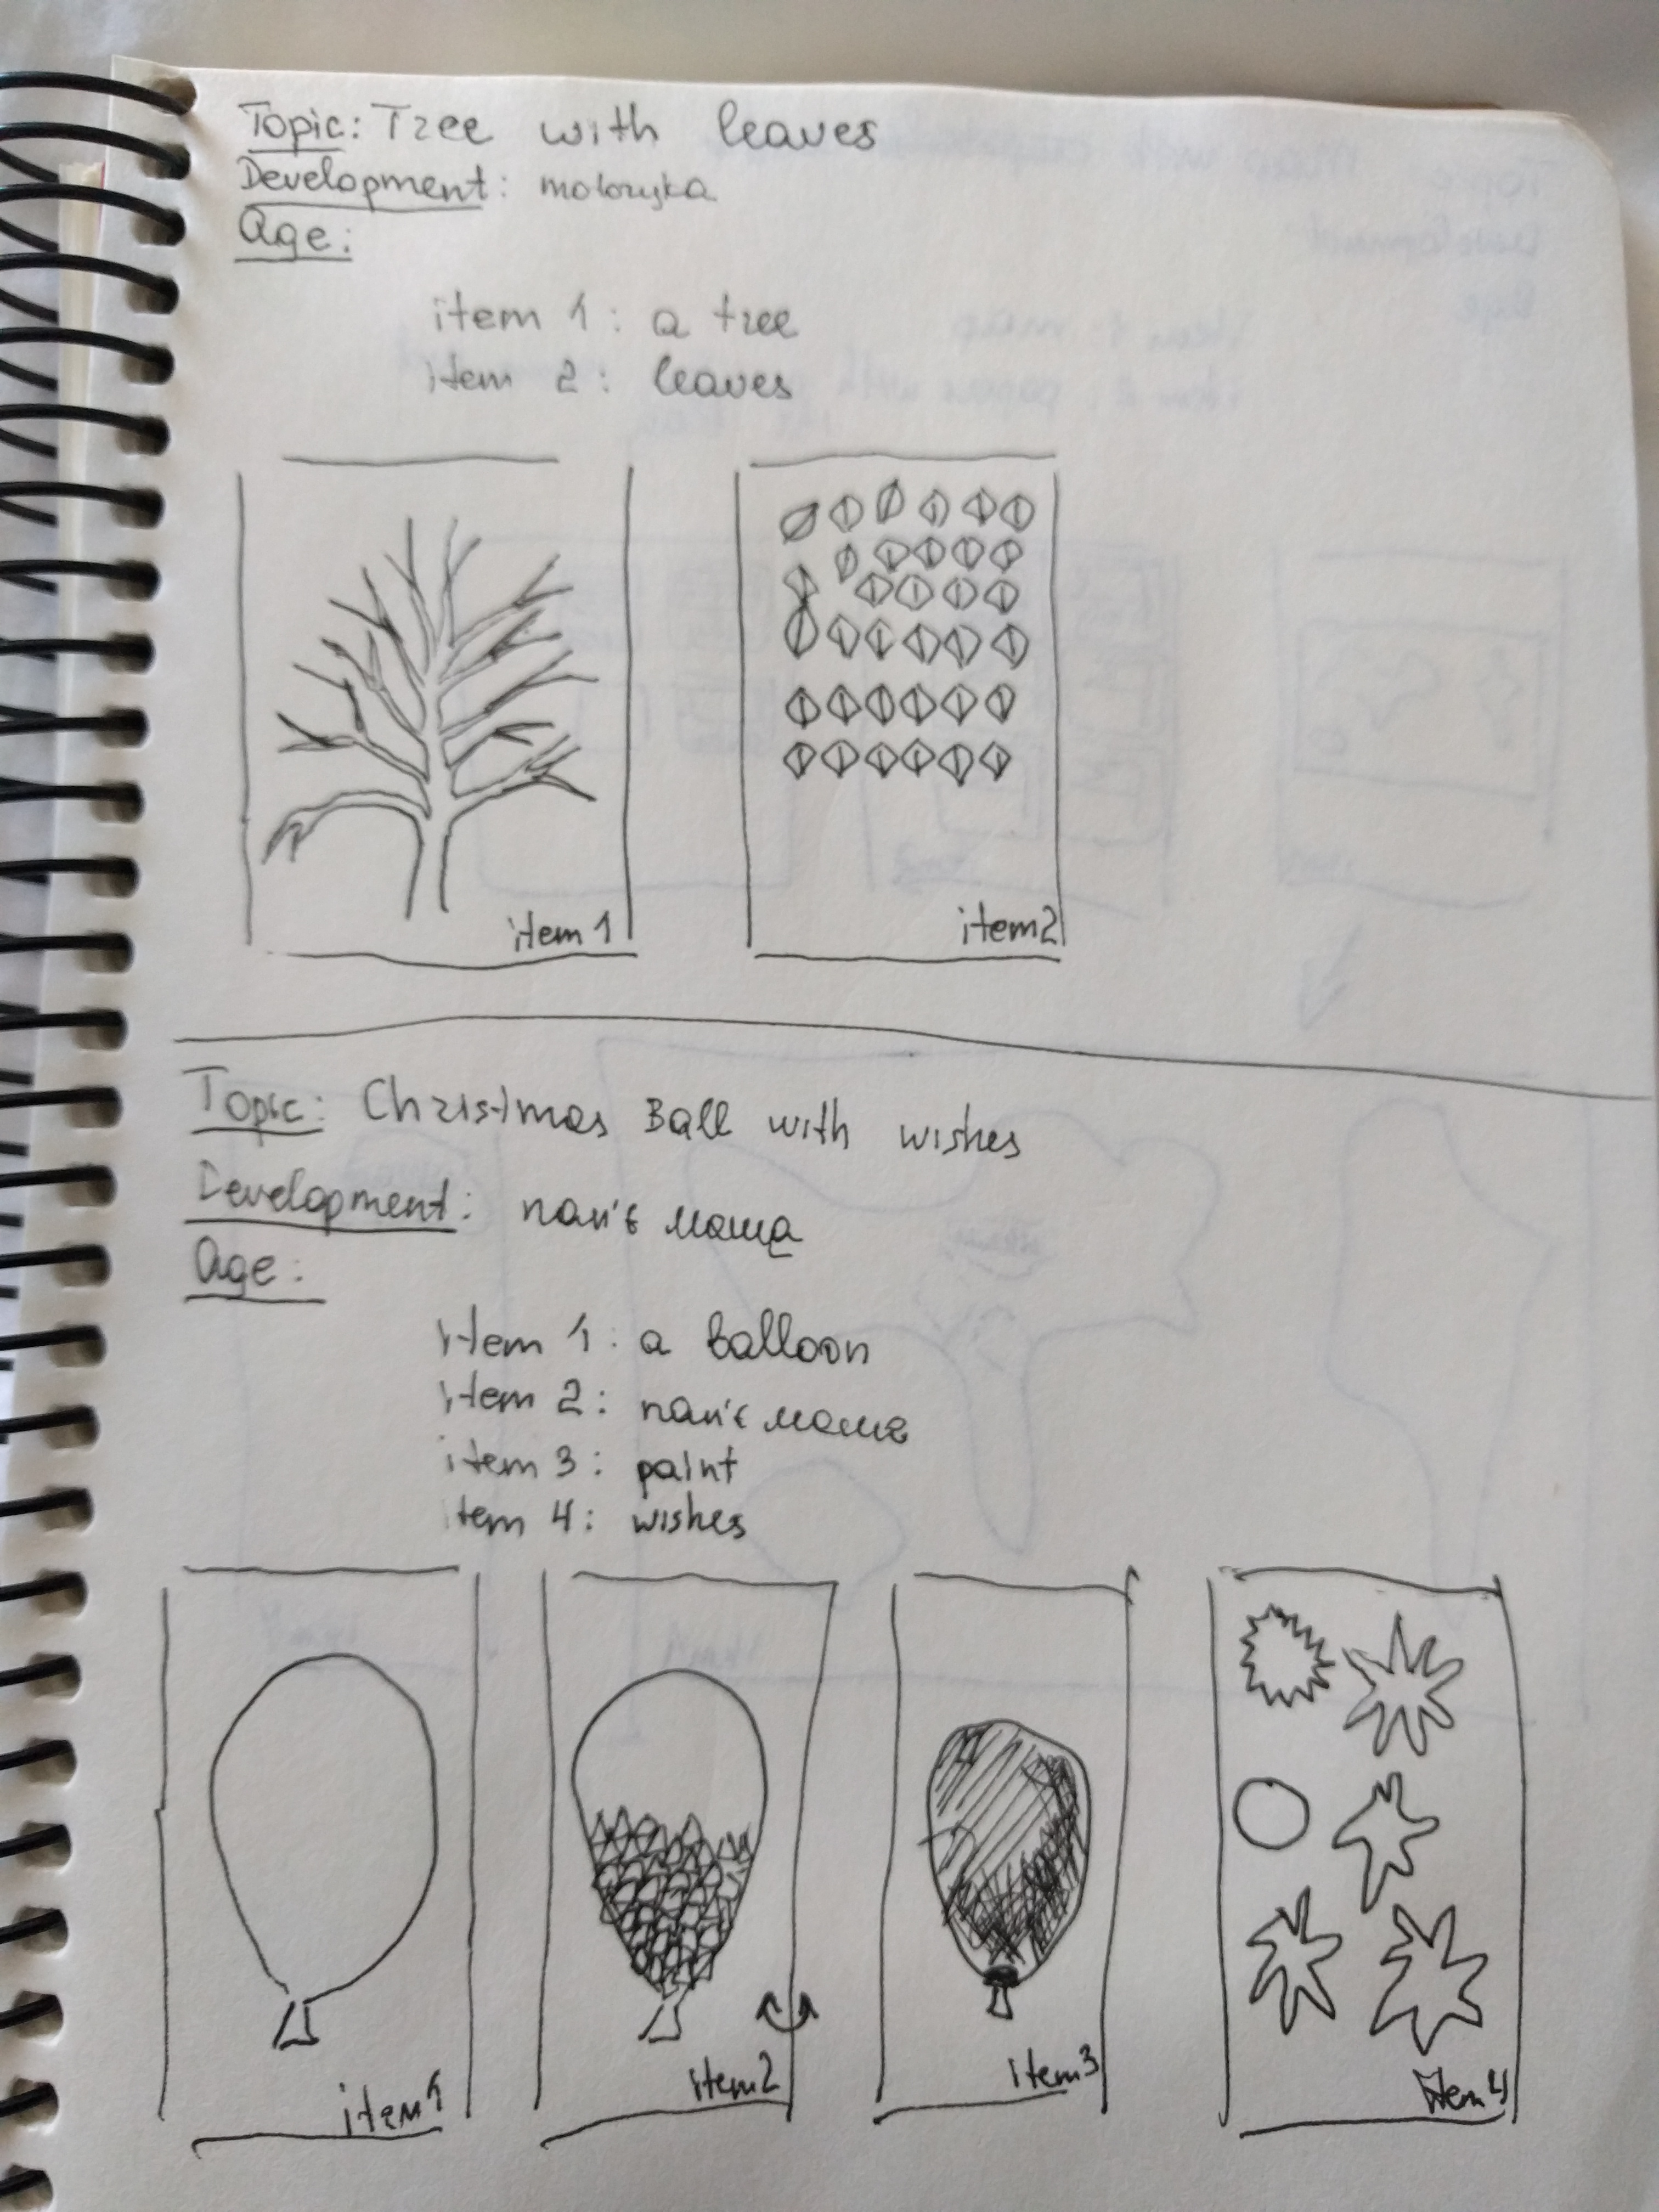 Topic: Tree with leaves
Development: motoryka
Age:
item 1: a tree
item 2: leaves
item 1
item 2
Topic: Christmas Ball with wishes
Development: пап'є маше
Age:
item 1: a balloon
item 2: пап'є маше
item 3: paint
item 4: wishes
item 1
item 2
item 3
item 4